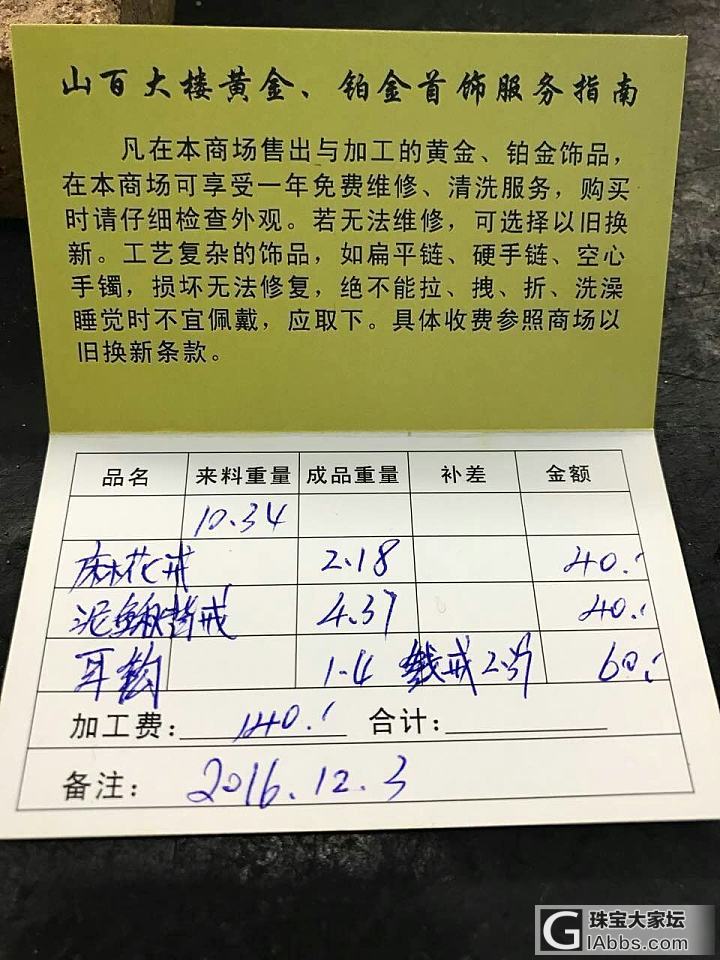 山百大楼黄金、铂金首饰服务指南
凡在本商场售出与加工的黄金、铂金饰品，
在本商场可享受一年免费维修、清洗服务，购买
时请仔细检查外观。若无法维修，可选择以旧换
新。工艺复杂的饰品，如扁平链、硬手链、空心
手镯，损坏无法修复，绝不能拉、拽、折、洗澡
睡觉时不宜佩戴，应取下。具体收费参照商场以
旧换新条款。
品名 来料重量 成品重量 补差 金额
10.34
麻花戒 2.18 40.
泥鳅背戒 4.37 40.
耳钩 1.4 线戒 60.
加工费： 140. 合计：
备注： 2016.12.3
珠宝大家坛
GIAbbs.com